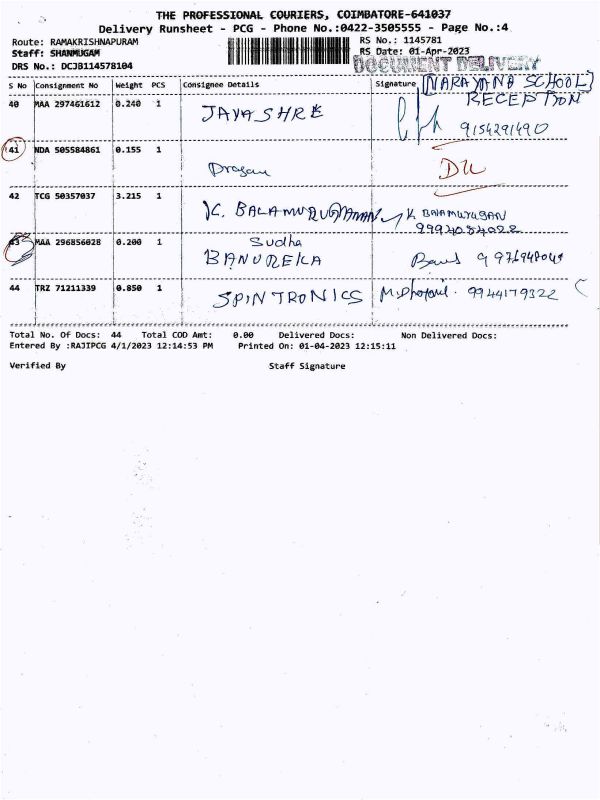 THE PROFESSIONAL COURIERS, COIMBATORE-641037
Delivery Runsheet - PCG - Phone No.:0422-3505555 - Page No.:4
Route: RAMAKRISHNAPURAM
RS No.: 1145781
Staff: SHANMUGAM
RS Date: 01-Apr-2023
DRS No.: DCJB114578104
DOCUMENT DELIVERY
S No Consignment No Weight PCS Consignee Details Signature
[NARAYANA SCHOOL]
RECEPTION
40 MAA 297461612 0.240 1 JAYASHRE
9154291490
41 NDA 505584861 0.155 1
42 TCG 50357037 3.215 1 K. BALAMURUGANAN K BALAMURUGAN
43 MAA 296856028 0.200 1 Sudha
BANUREKA
44 TRZ 71211339 0.850 1 SPINTRONICS 9944179322
Total No. Of Docs: 44 Total COD Amt: 0.00 Delivered Docs: Non Delivered Docs:
Entered By :RAJIPCG 4/1/2023 12:14:53 PM Printed On: 01-04-2023 12:15:11
Verified By Staff Signature